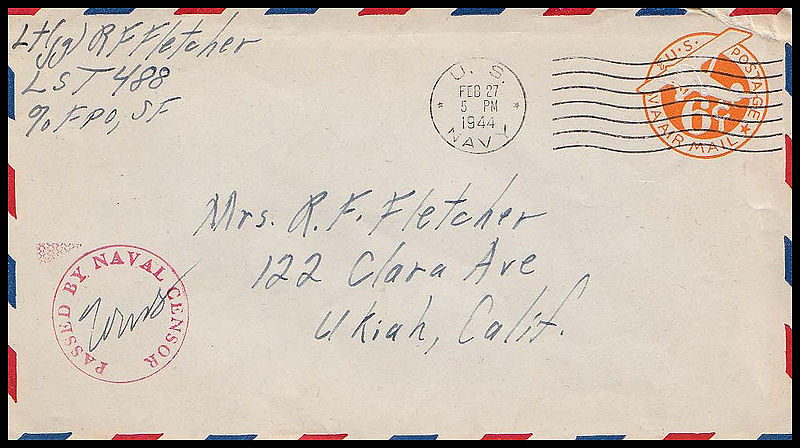 Lt(jg) R F Fletcher
LST 488
% FPO, SF
U. S.
FEB 27
5 PM
1944
NAVY
U.S. POSTAGE
6¢
VIA AIR MAIL
Mrs. R. F. Fletcher
122 Clara Ave
Ukiah, Calif.
PASSED BY NAVAL CENSOR